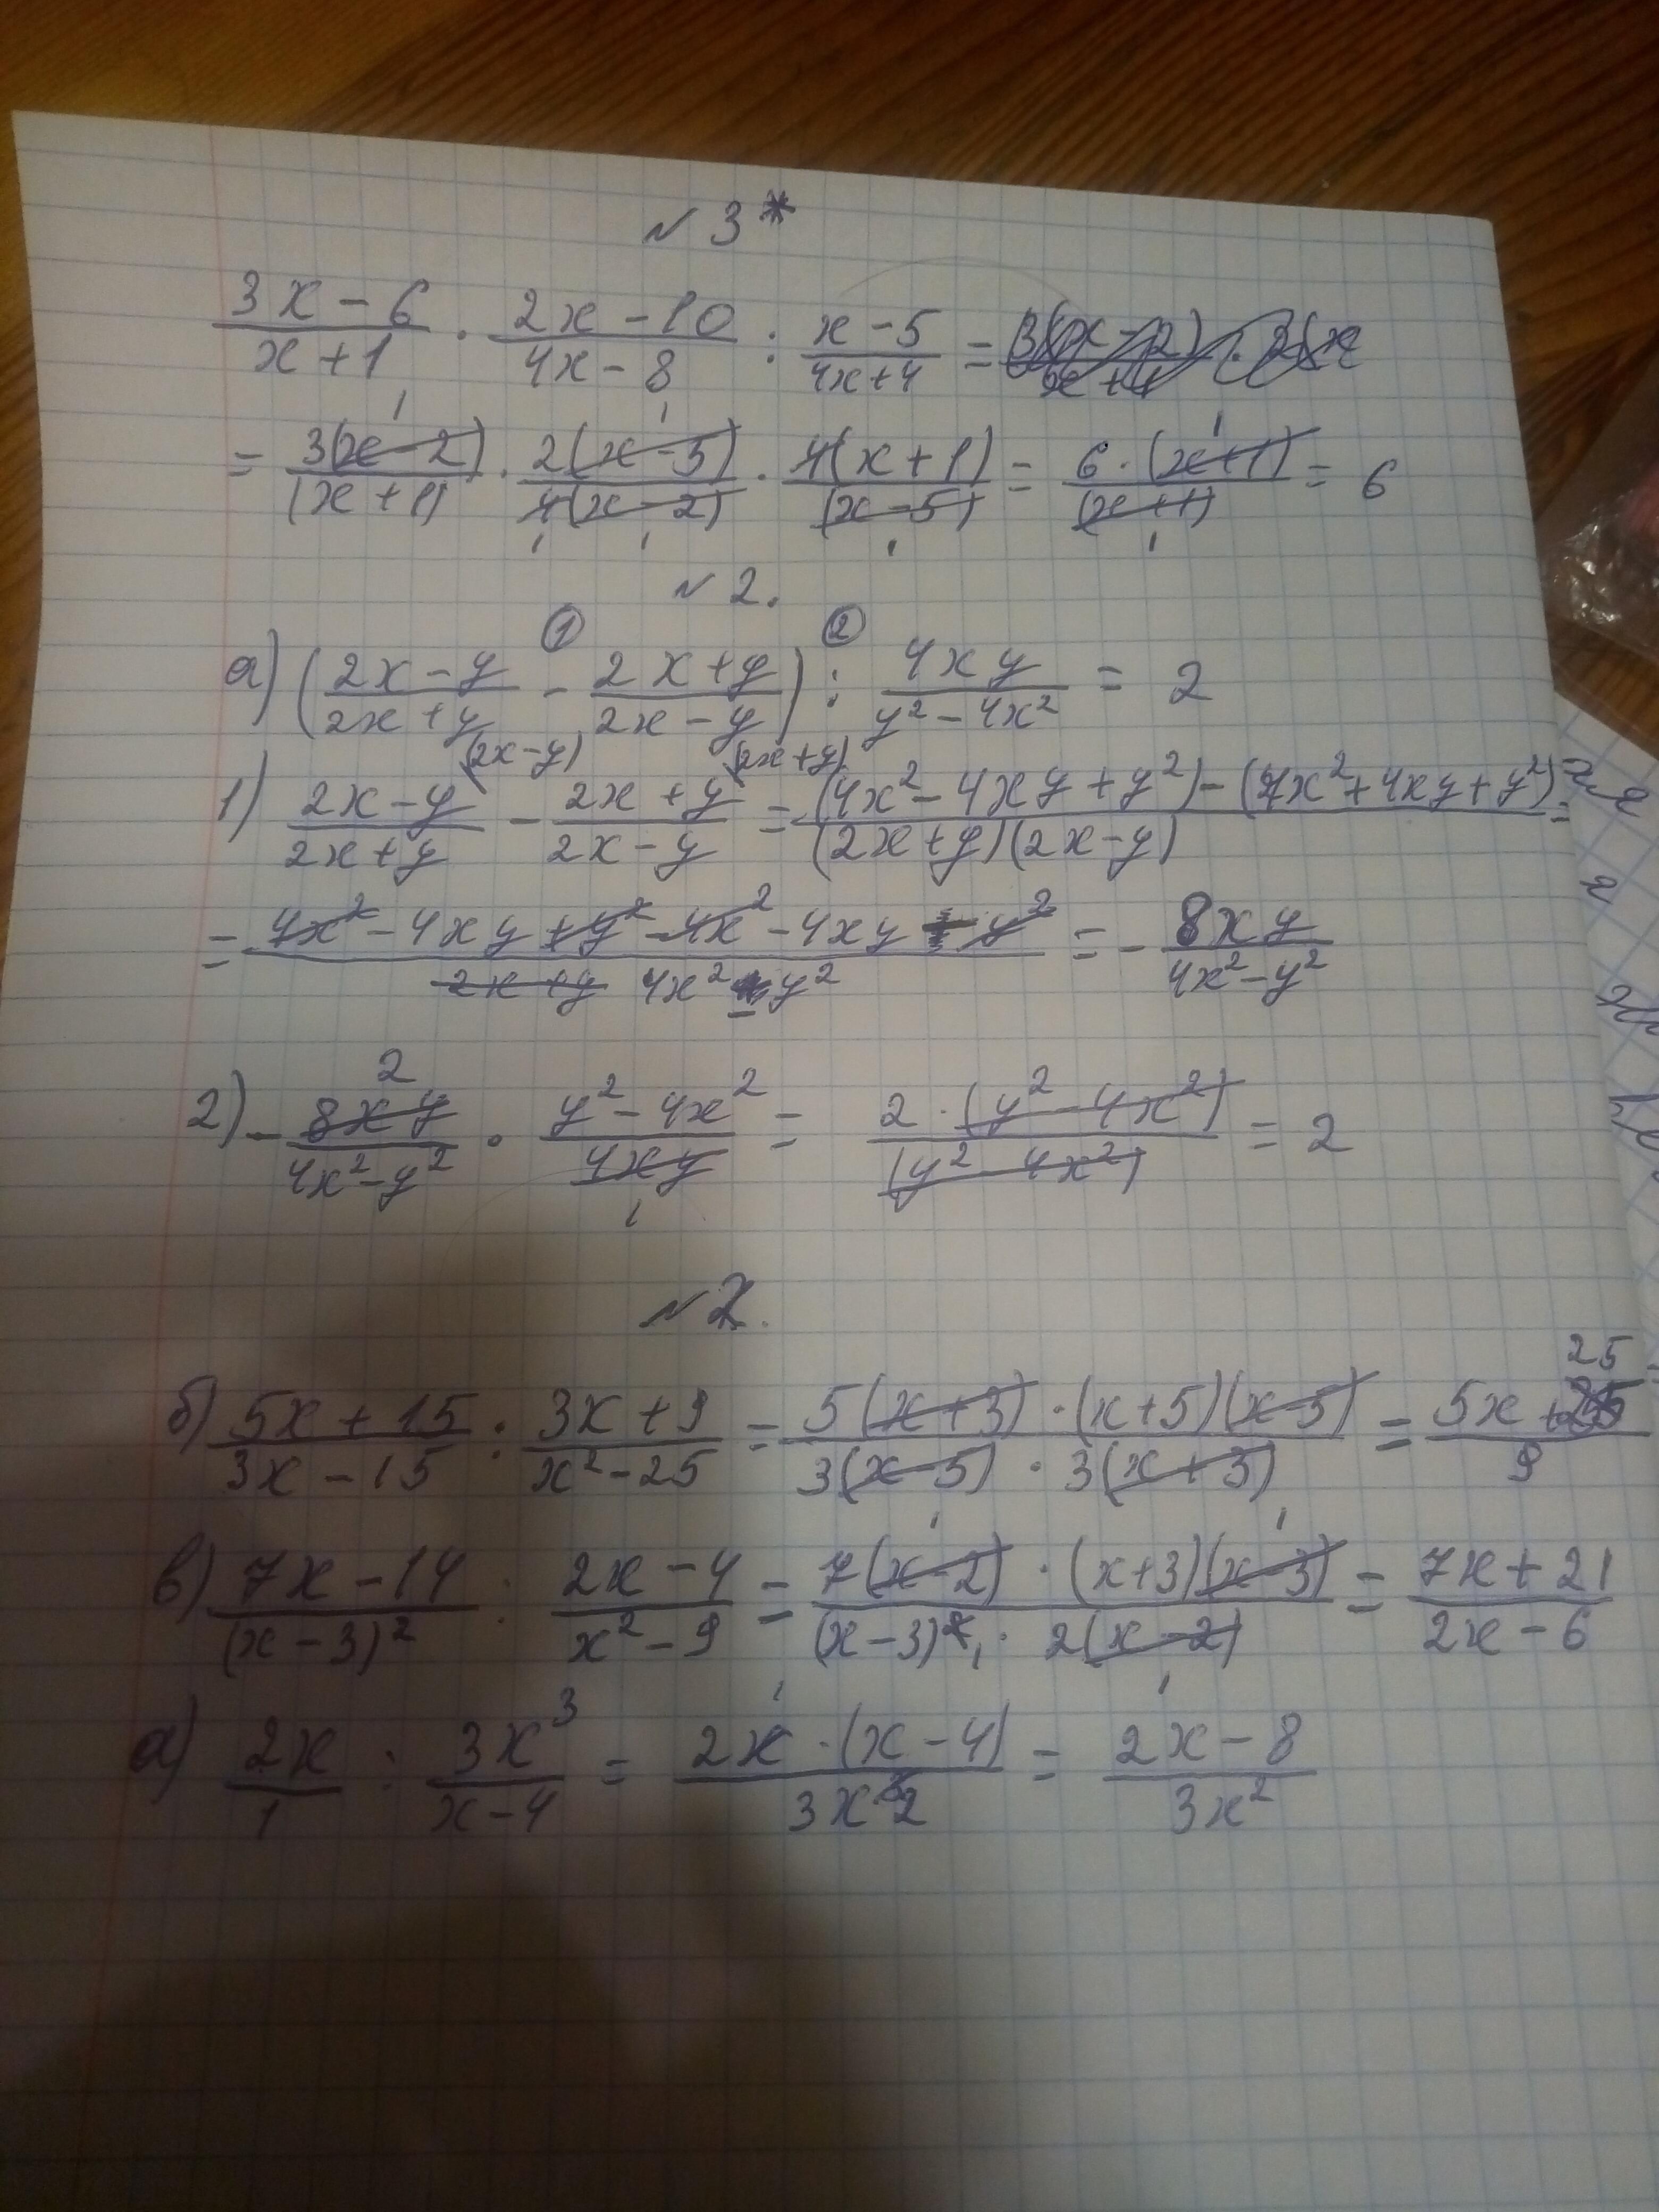 № 3*
(3x − 6)/(x + 1) · (2x − 10)/(4x − 8) : (x − 5)/(4x + 4) =
= 3(x − 2)/(x + 1) · 2(x − 5)/4(x − 2) · 4(x + 1)/(x − 5) = 6 · (x + 1)/(x + 1) = 6
№ 2.
а) ((2x − y)/(2x + y) − (2x + y)/(2x − y)) : 4xy/(y² − 4x²) = 2
1) (2x − y)/(2x + y) − (2x + y)/(2x − y) = ((4x² − 4xy + y²) − (4x² + 4xy + y²))/((2x + y)(2x − y)) =
= (4x² − 4xy + y² − 4x² − 4xy − y²)/(4x² − y²) = − 8xy/(4x² − y²)
2) − 8xy/(4x² − y²) · (y² − 4x²)/4xy = 2 · (y² − 4x²)/(y² − 4x²) = 2
№ 2.
б) (5x + 15)/(3x − 15) : (3x + 9)/(x² − 25) = 5(x + 3) · (x + 5)(x − 5)/3(x − 5) · 3(x + 3) = (5x + 25)/9
в) (7x − 14)/(x − 3)² : (2x − 4)/(x² − 9) = 7(x − 2) · (x + 3)(x − 3)/(x − 3)² · 2(x − 2) = (7x + 21)/(2x − 6)
а) 2x/1 : 3x³/(x − 4) = 2x · (x − 4)/3x³ = (2x − 8)/3x²